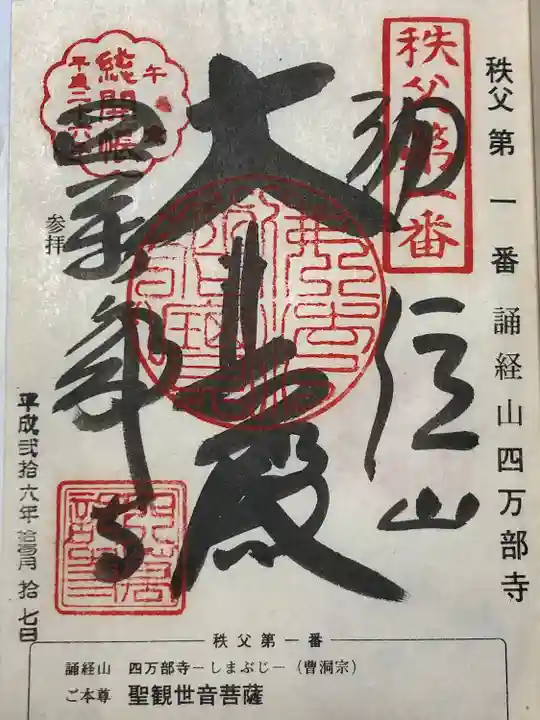 秩父第一番 誦経山四万部寺
秩父第一番
誦経山
大悲殿
四萬部寺
午歳
総開帳
平成二十六年
参拝
平成弐拾六年拾壱月拾七日
秩父第一番
誦経山 四万部寺－しまぶじ－（曹洞宗）
ご本尊 聖観世音菩薩